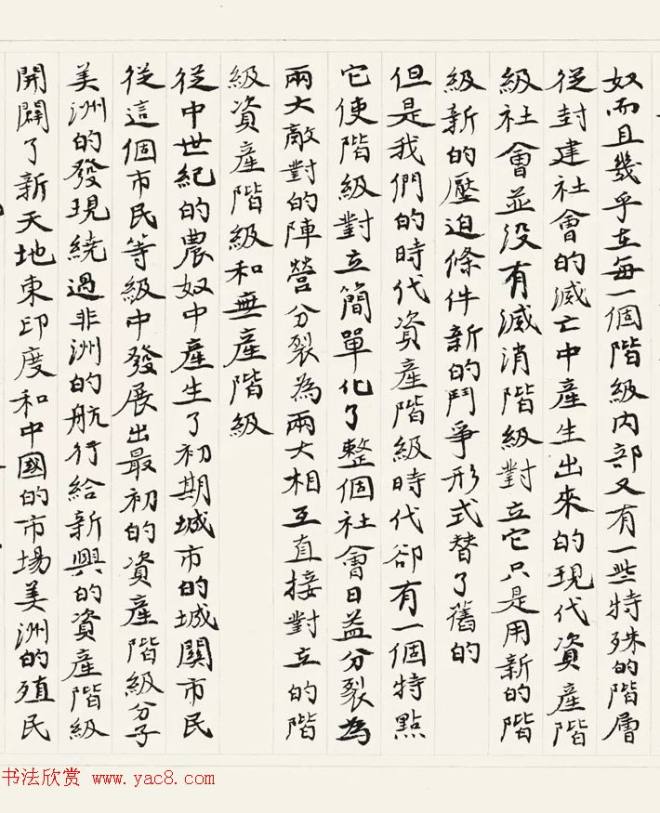 奴而且幾乎在每一個階級内部又有一些特殊的階層
從封建社會的滅亡中產生出來的現代資產階
級社會並没有滅消階級對立它只是用新的階
級新的壓迫條件新的鬥爭形式替了舊的
但是我們的時代資產階級時代卻有一個特點
它使階級對立簡單化了整個社會日益分裂為
兩大敵對的陣營分裂為兩大相互直接對立的階
級資產階級和無產階級
從中世紀的農奴中產生了初期城市的城關市民
從這個市民等級中發展出最初的資產階級分子
美洲的發現繞過非洲的航行給新興的資產階級
開闢了新天地東印度和中國的市場美洲的殖民
书法欣赏 www.yac8.com